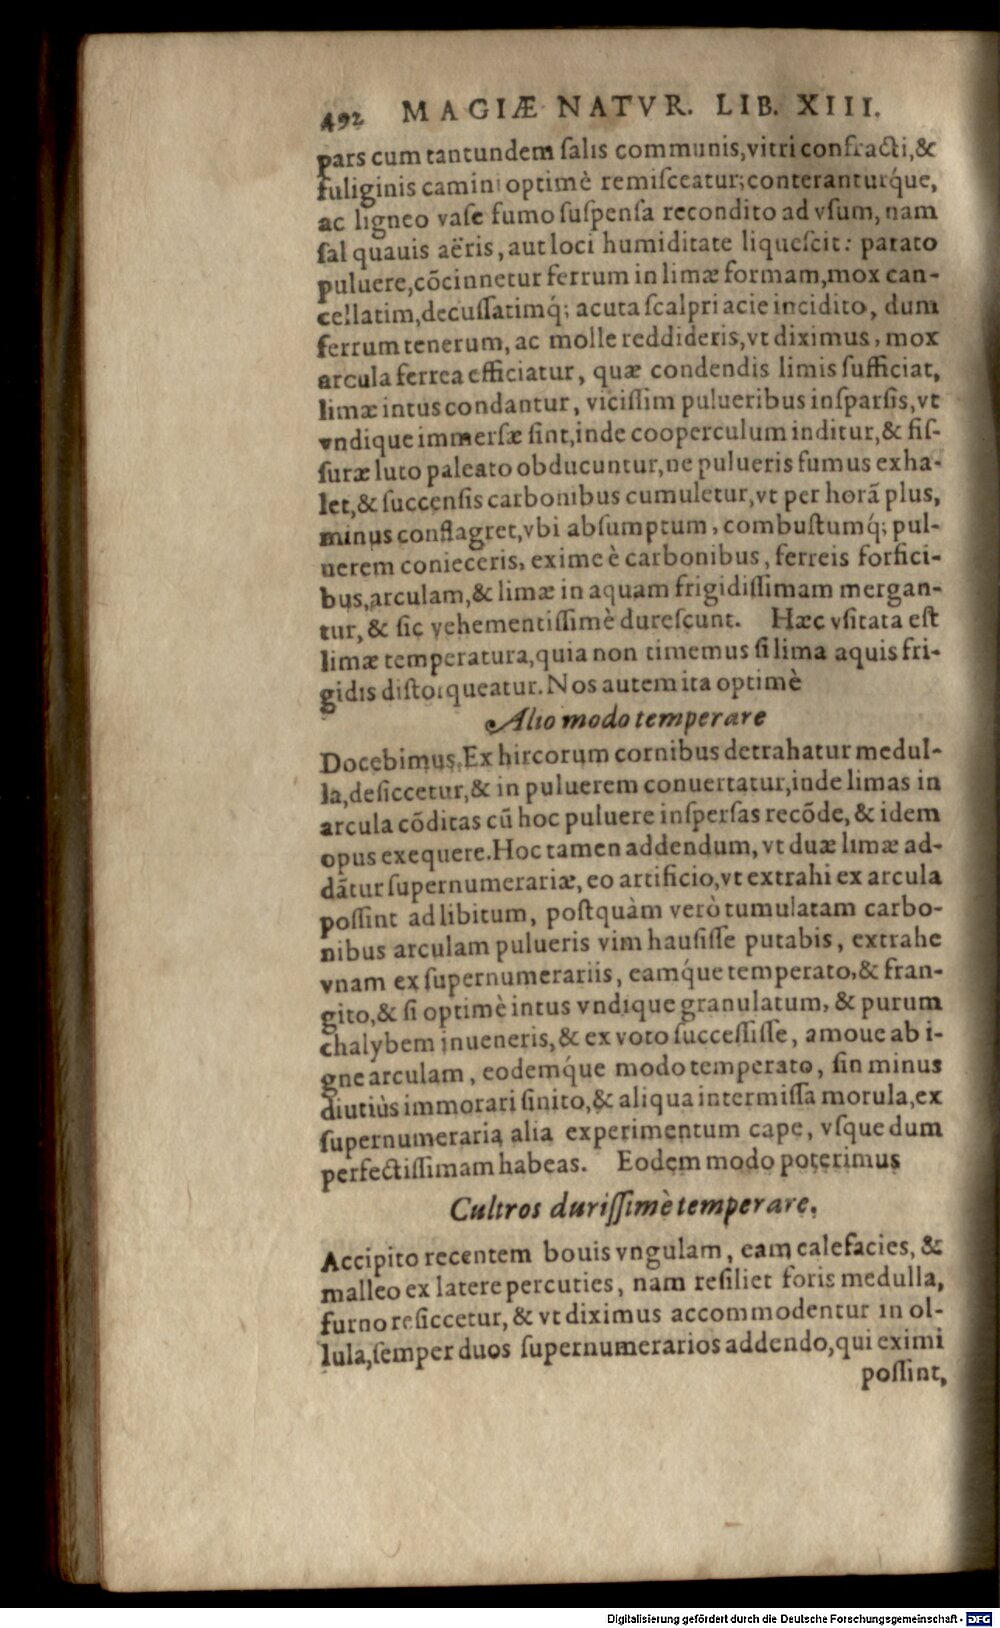 492 MAGIÆ NATVR. LIB. XIII.
pars cum tantundem ſalis communis, vitri confracti, &
fuliginis camini optimè remiſceatur; conteranturq́ue,
ac ligneo vaſe fumo ſuſpenſa recondito ad vſum, nam
ſal quauis aëris, aut loci humiditate liqueſcit: parato
puluere, cõcinnetur ferrum in limæ formam, mox can-
cellatim, decuſſatimq́; acuta ſcalpri acie incidito, dum
ferrum tenerum, ac molle reddideris, vt diximus, mox
arcula ferrea efficiatur, quæ condendis limis ſufficiat,
limæ intus condantur, viciſſim pulueribus inſparſis, vt
vndique immerſæ ſint, inde cooperculum inditur, & fiſ-
ſuræ luto paleato obducuntur, ne pulueris fumus exha-
let, & ſuccenſis carbonibus cumuletur, vt per horã plus,
minus conflagret, vbi abſumptum, combuſtumq́; pul-
uerem conieceris, exime è carbonibus, ferreis forfici-
bus, arculam, & limæ in aquam frigidiſſimam mergan-
tur, & ſic vehementiſſimè dureſcunt. Hæc vſitata eſt
limæ temperatura, quia non timemus ſi lima aquis fri-
gidis diſtorqueatur. Nos autem ita optimè
Alio modo temperare
Docebimus. Ex hircorum cornibus detrahatur medul-
la, deſiccetur, & in puluerem conuertatur, inde limas in
arcula cõditas cũ hoc puluere inſperſas recõde, & idem
opus exequere. Hoc tamen addendum, vt duæ limæ ad-
dãtur ſupernumerariæ, eo artificio, vt extrahi ex arcula
poſſint ad libitum, poſtquàm verò tumulatam carbo-
nibus arculam pulueris vim hauſiſſe putabis, extrahe
vnam ex ſupernumerariis, eamq́ue temperato, & fran-
gito, & ſi optimè intus vndique granulatum, & purum
chalybem inueneris, & ex voto ſucceſſiſſe, amoue ab i-
gne arculam, eodemq́ue modo temperato, ſin minus
diutiùs immorari ſinito, & aliqua intermiſſa morula, ex
ſupernumeraria alia experimentum cape, vſque dum
perfectiſſimam habeas. Eodem modo poterimus
Cultros duriſſimè temperare.
Accipito recentem bouis vngulam, eam calefacies, &
malleo ex latere percuties, nam reſiliet foris medulla,
furno reſiccetur, & vt diximus accommodentur in ol-
lula, ſemper duos ſupernumerarios addendo, qui eximi
poſſint,
Digitalisierung gefördert durch die Deutsche Forschungsgemeinschaft - DFG